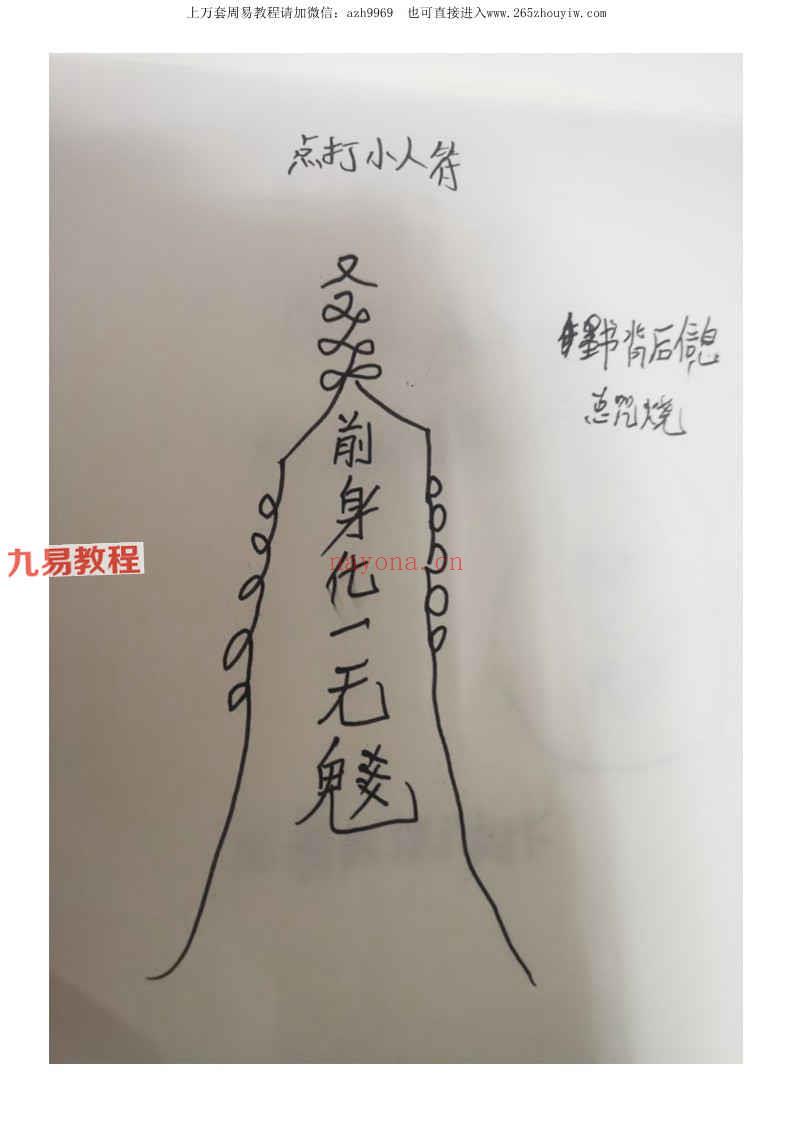 上万套周易教程请加微信：azh9969 也可直接进入www.265zhouyiw.com
点打小人符
书背后信息
总咒烧
前
身
化
一
无
九易教程
nayona.cn